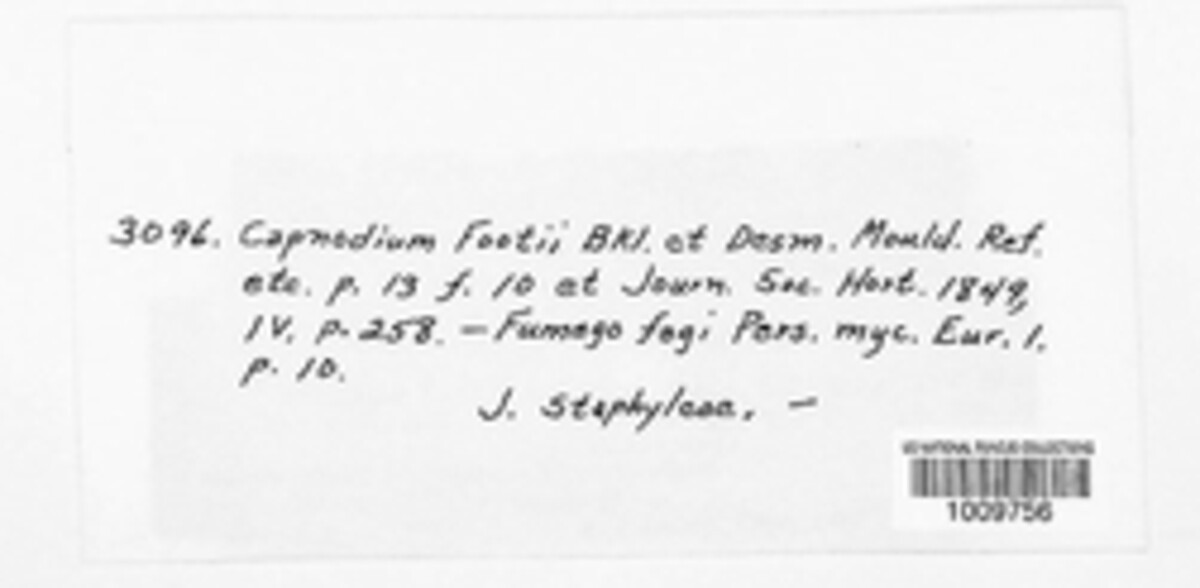 3096. Capnodium Footii BKl. et Desm. Mould. Ref.
etc. p. 13 f. 10 et Journ. Soc. Hort. 1849,
IV. p. 258. — Fumago fagi Pers. myc. Eur. 1.
p. 10.
J. Staphyleae. —
US NATIONAL FUNGUS COLLECTIONS
1009756